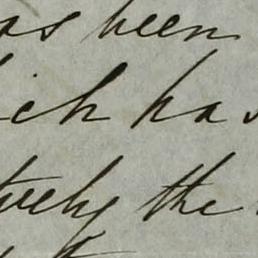 as been
ich has
tively the